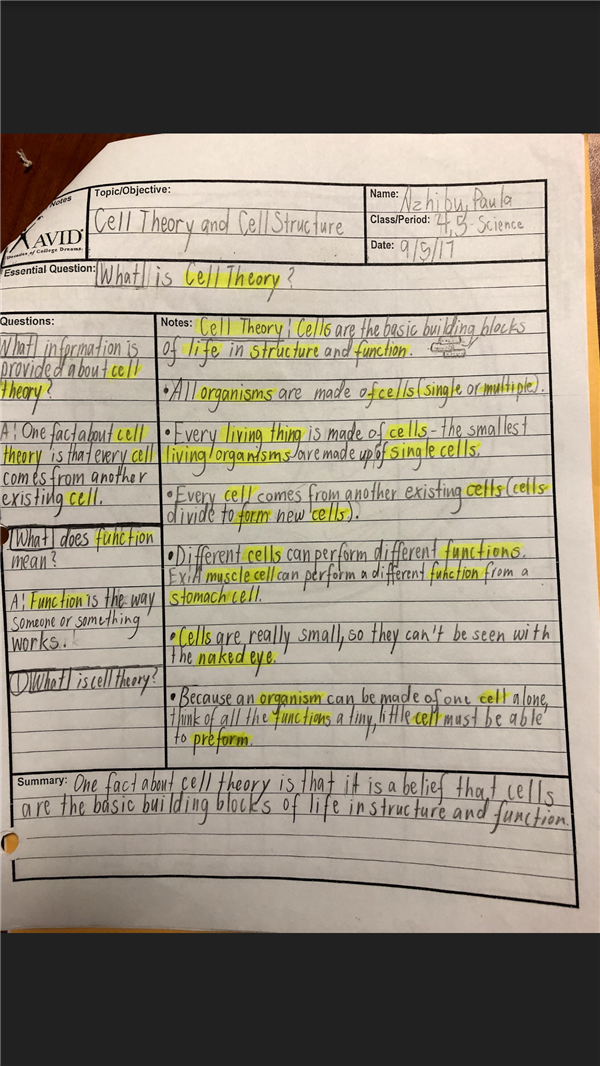 Notes
AVID
Decades of College Dreams.
Topic/Objective:
Cell Theory and Cell Structure
Name: Azhibu, Paula
Class/Period: 4,5 - Science
Date: 9/5/17
Essential Question: What is Cell Theory?
Questions:
What information is
provided about cell
theory?
A: One fact about cell
theory is that every cell
comes from another
existing cell.
What does function
mean?
A: Function is the way
someone or something
works.
What is cell theory?
Notes: Cell Theory: Cells are the basic building blocks
of life in structure and function.
• All organisms are made of cells (single or multiple).
• Every living thing is made of cells - the smallest
living organisms are made up of single cells.
• Every cell comes from another existing cells (cells
divide to form new cells).
• Different cells can perform different functions.
Ex: A muscle cell can perform a different function from a
stomach cell.
• Cells are really small, so they can't be seen with
the naked eye.
• Because an organism can be made of one cell alone,
think of all the functions a tiny, little cell must be able
to preform.
Summary: One fact about cell theory is that it is a belief that cells
are the basic building blocks of life in structure and function.